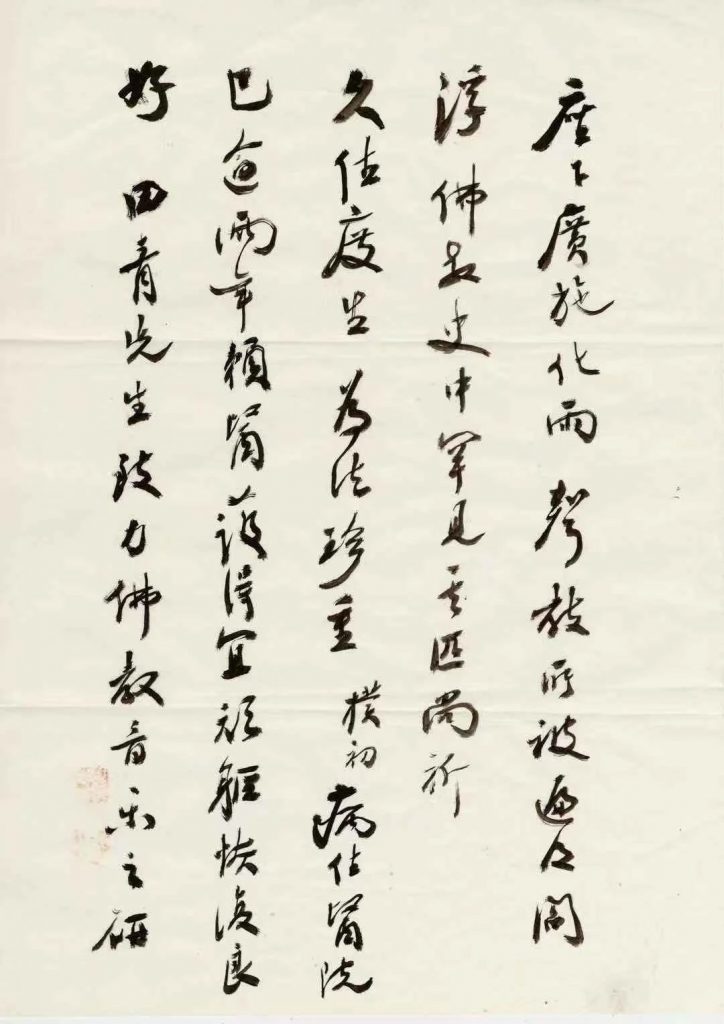 座下廣施化雨聲教所被遍及閻
浮佛教史中罕見其匹尚祈
久住度生為法珍重樸初病住醫院
已逾兩年賴醫護得宜頑軀恢復良
好田青先生致力佛教音樂之研